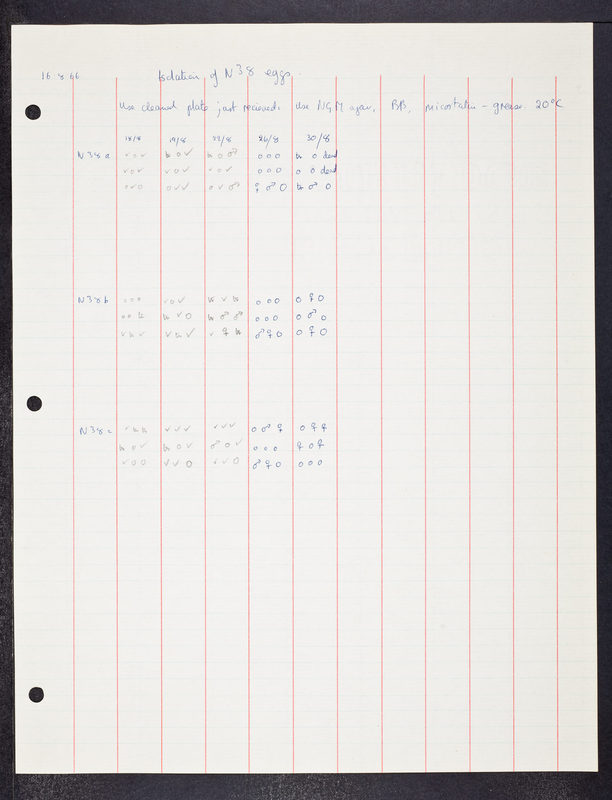 16 8 66 Isolation of N38 eggs.
Use cleaned plate just recieved. Use NGM agar, BB, micostatin - grease 20°C
18/8 19/8 22/8 26/8 30/8
N38a ✓ o ✓ o ✓ o ♂ o o o o dead
✓ o ✓ ✓ o ✓ ✓ o ✓ o o o o o dead
o ✓ o o ✓ ✓ o ✓ ♂ ♀ ♂ o ♂ o
N38b ✓ o ✓ ✓ o o o o ♀ o
o o ✓ o ♂ ♂ o o o o ♂ o
✓ ✓ ✓ ✓ ✓ ♀ ♂ ♀ o o ♀ o
N38c ✓ ✓ ✓ ✓ ✓ ✓ ✓ o ♂ ♀ o ♀ ♀
o ✓ o ✓ ♂ o ✓ o o o ♀ o ♀
✓ o o ✓ ✓ o ✓ ✓ o ♂ ♀ o o o o